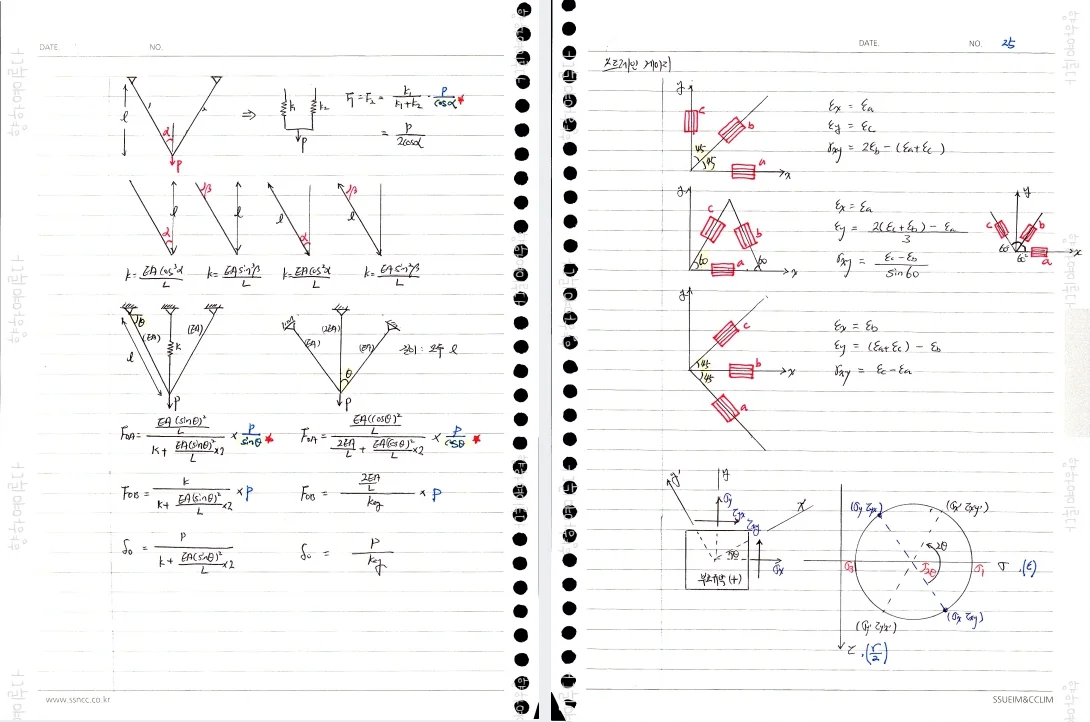 DATE. NO.
l α P
⇒ k₁ k₂ P
F₁ = F₂ = k₁/(k₁+k₂) · P/cosα ★
= P/2cosα
α l β l l α β l
k = EA cos²α/L k = EA sin²β/L k = EA cos²α/L k = EA sin²β/L
θ (EA) k (EA) l P
(EA) (2EA) (EA) θ P 길이 : 모두 l
F_OA = (EA(sinθ)²/L)/(k + EA(sinθ)²/L ×2) × P/sinθ ★
F_OA = (EA(cosθ)²/L)/(2EA/L + EA(cosθ)²/L ×2) × P/cosθ ★
F_OB = k/(k + EA(sinθ)²/L ×2) × P
F_OB = (2EA/L)/keq × P
δ₀ = P/(k + EA(sinθ)²/L ×2)
δ₀ = P/keq
www.ssncc.co.kr
DATE. NO. 25
스트레인 게이지
y c b 45 45 a x
εx = εa
εy = εc
γxy = 2εb − (εa+εc)
y c b 60 a 60 x
εx = εa
εy = (2(εc+εb) − εa)/3
γxy = (εc−εb)/sin60
y c b 60° 60° a x
y c 45 45 b x a
εx = εb
εy = (εa+εc) − εb
γxy = εc − εa
y' y x' σy τyx τxy θ σx
(+)
(σy τyx) (σx' τx'y') 2θ σ₂ 2θ σ₁ σ, (ε)
(σy' τy'x') (σx τxy)
τ, (γ/2)
SSUEIM&CCLIM